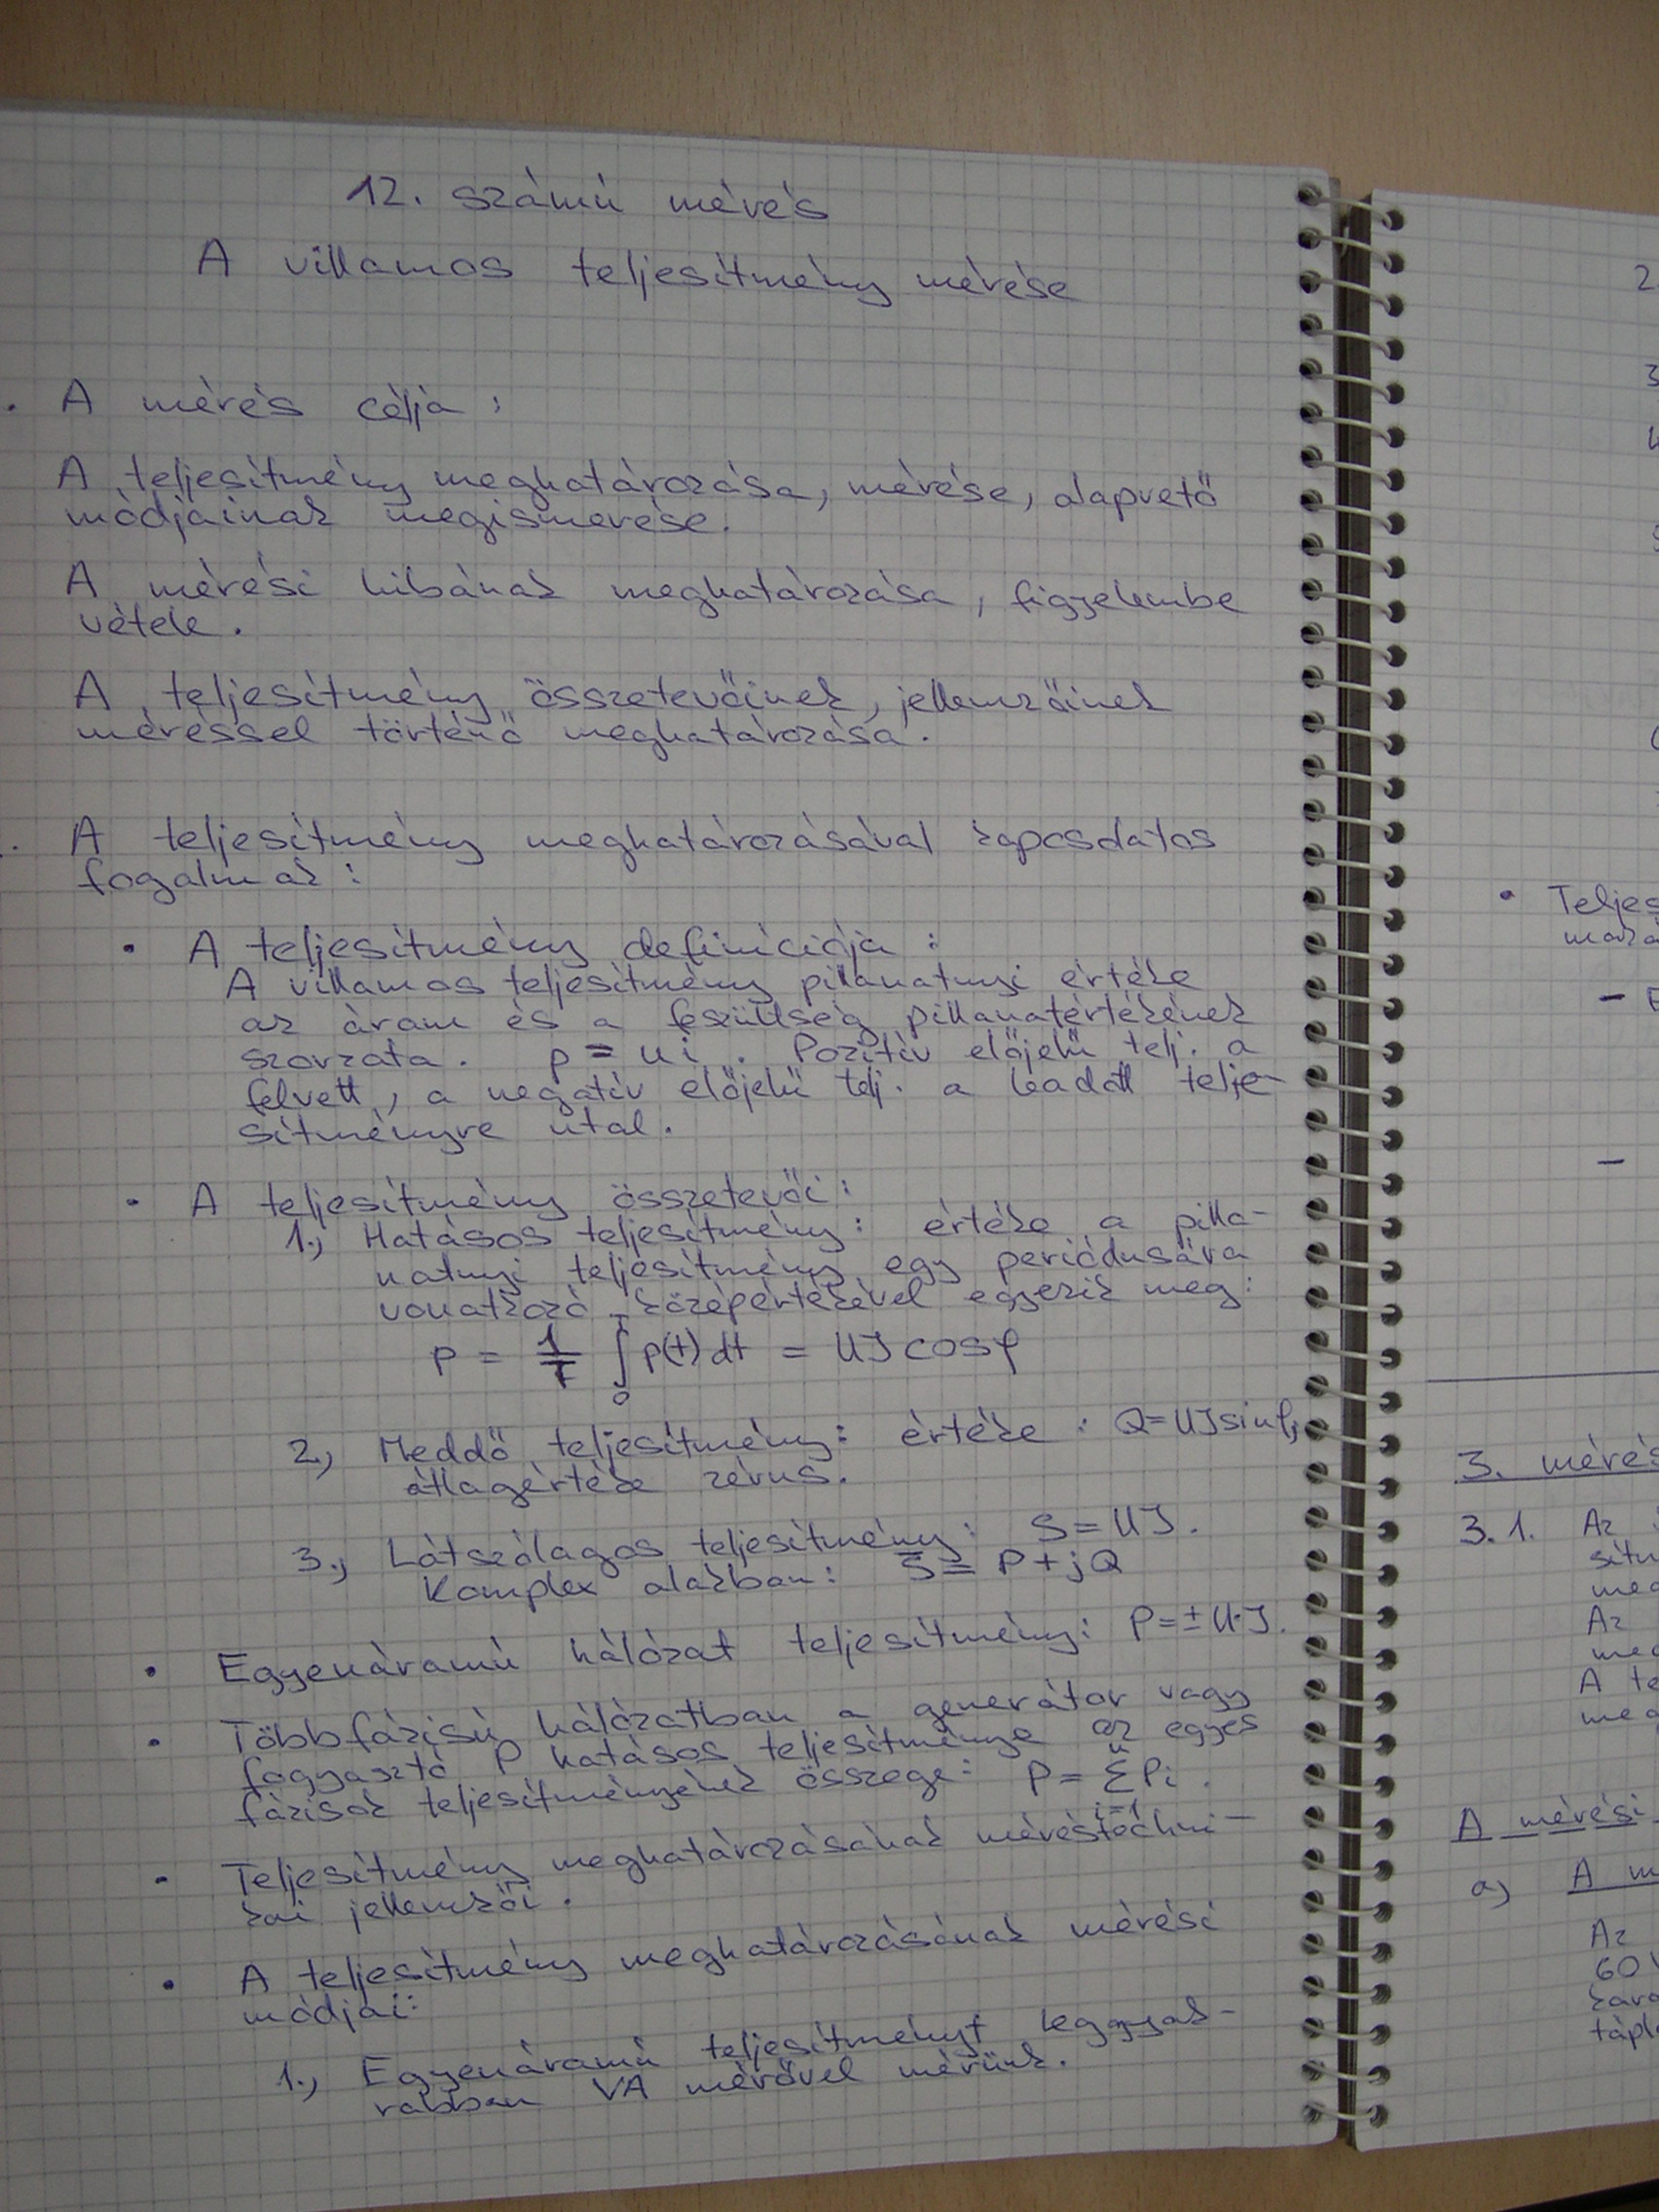 12. számú mérés
A villamos teljesítmény mérése
. A mérés célja :
A teljesítmény meghatározása, mérése, alapvető
módjainak megismerése.
A mérési hibának meghatározása, figyelembe
vétele.
A teljesítmény összetevőinek, jellemzőinek
méréssel történő meghatározása.
. A teljesítmény meghatározásával kapcsolatos
fogalmak :
• A teljesítmény definíciója :
A villamos teljesítmény pillanatnyi értéke
az áram és a feszültség pillanatértékének
szorzata. p = ui . Pozitív előjelű telj. a
felvett, a negatív előjelű telj. a leadott telje-
sítményre utal.
• A teljesítmény összetevői:
1., Hatásos teljesítmény: értéke a pilla-
natnyi teljesítmény egy periódusára
vonatkozó középértékével egyezik meg:
P = 1/T ∫₀ᵀ p(t) dt = UI cosφ
2., Meddő teljesítmény: értéke : Q=UIsinφ;
átlagértéke zérus.
3., Látszólagos teljesítmény: S=UI.
Komplex alakban: S = P+jQ
• Egyenáramú hálózat teljesítmény: P=±U·I.
• Többfázisú hálózatban a generátor vagy
fogyasztó P hatásos teljesítménye az egyes
fázisok teljesítményének összege: P= Σⁿᵢ₌₁ Pi .
• Teljesítmény meghatározásának méréstechni-
kai jellemzői.
• A teljesítmény meghatározásának mérési
módjai:
1., Egyenáramú teljesítményt leggyak-
rabban VA mérővel mérünk.
2
3
• Teljes
-
-
3. mérés
3.1. Az
sítm
meg
Az
meg
A te
meg
A mérési
a) A m
Az
60V
táplá